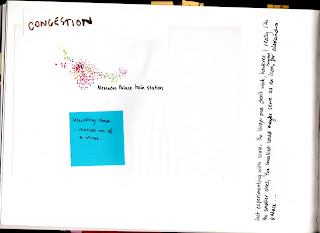 CONGESTION
Alexandra Palace train station
Interesting shape
- reminds me of
a virus.
Just experimenting with scale. The large one don't work, however I really like
the smaller ones, the smallest could maybe serve as an icon for Alexandra
Palace...